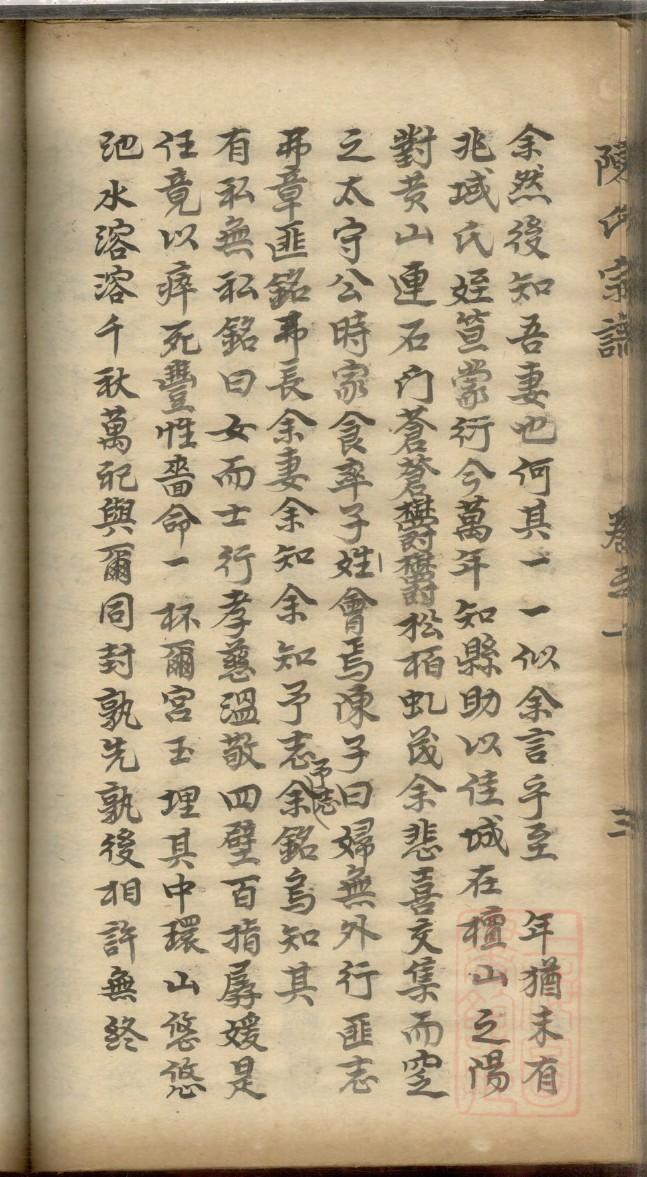 陳氏宗譜 卷之一 三
余然後知吾妻也何其一一似余言乎至 年猶未有
兆域氏姪笪蒙衍今萬年知縣助以佳城在檀山之陽
對黄山連石门蒼蒼欝欝松柏虬茂余悲喜交集而窆
之太守公時家食率子姓會焉陳子曰婦無外行匪志
弗章匪銘弗長余妻余知余知予志予志余銘烏知其
有私無私銘曰女而士行孝慈溫敬四壁百指孱媛是
任竟以瘁死豐性嗇命一杯爾宮玉埋其中環山悠悠
池水溶溶千秋萬祀與爾同封孰先孰後相許無終